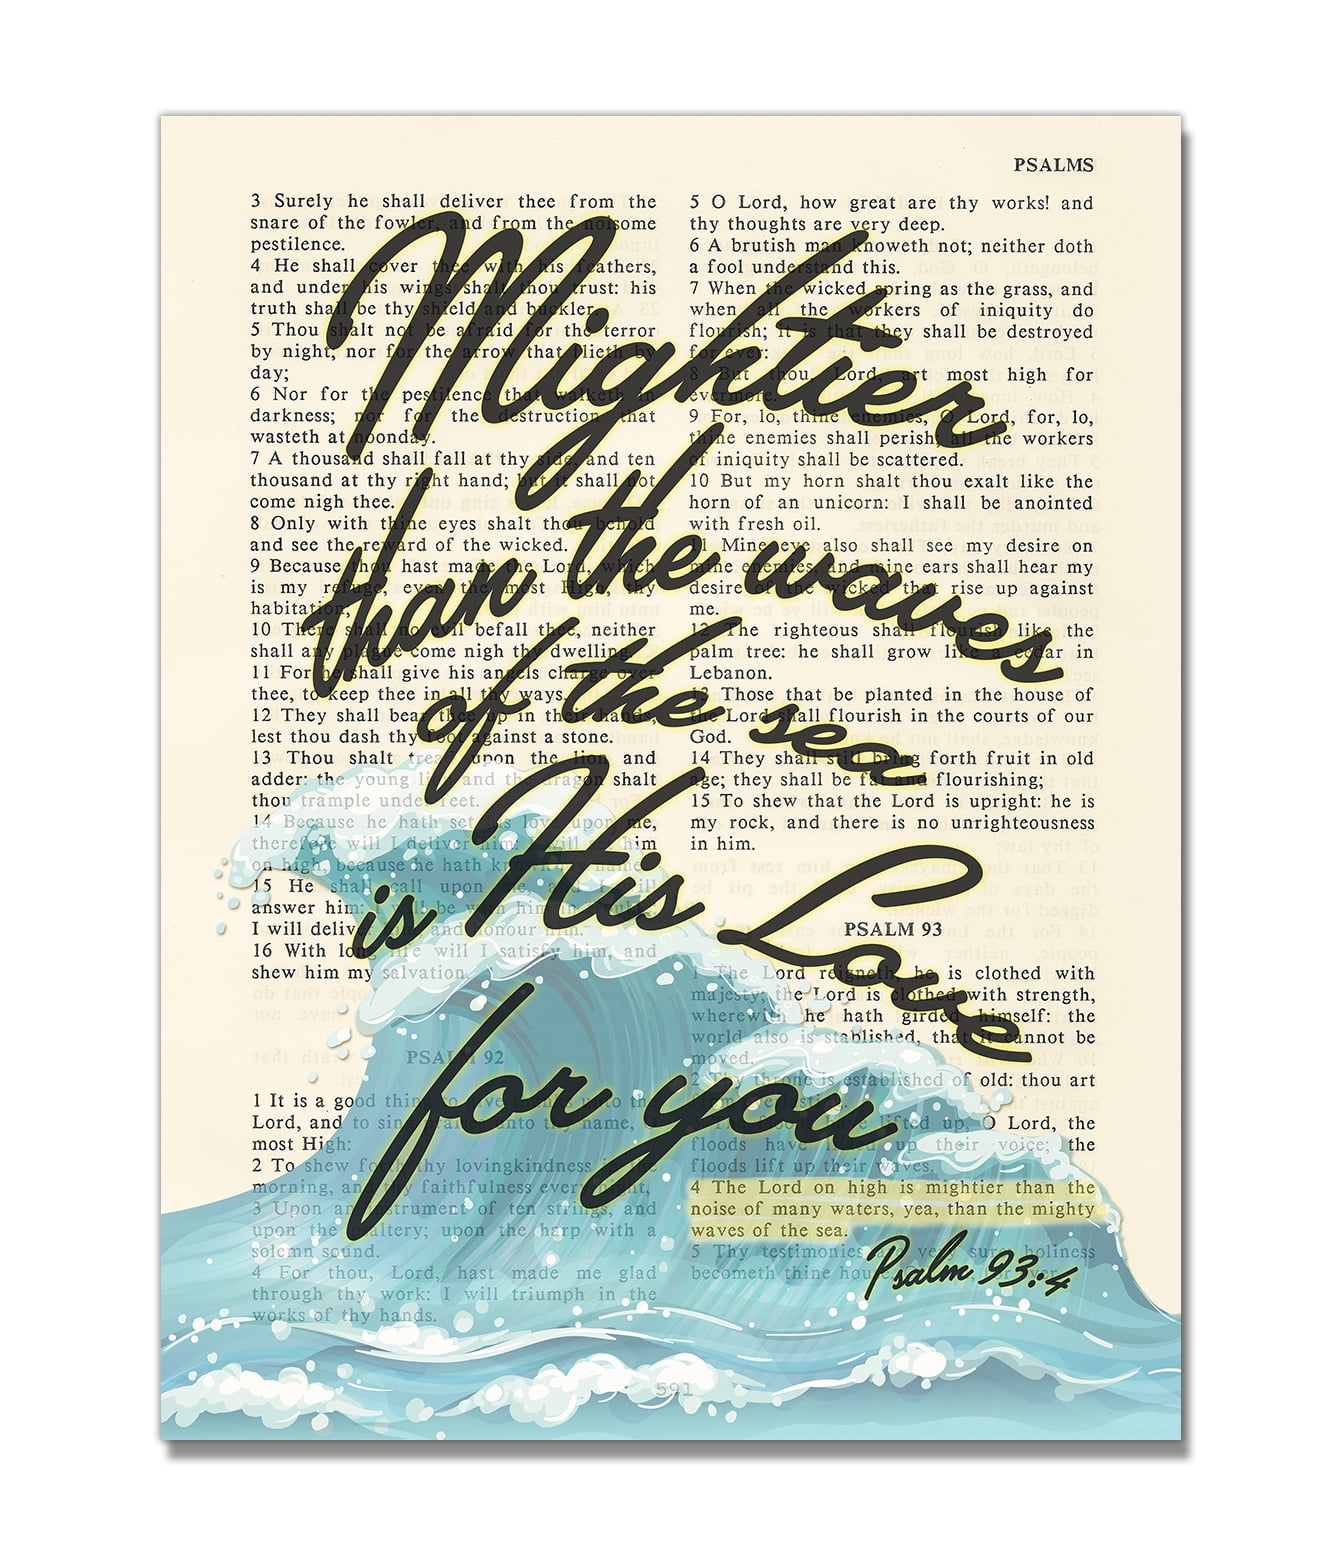 PSALMS
3 Surely he shall deliver thee from the
snare of the fowler, and from the noisome
pestilence.
4 He shall cover thee with his feathers,
and under his wings shalt thou trust: his
truth shall be thy shield and buckler.
5 Thou shalt not be afraid for the terror
by night; nor for the arrow that flieth by
day;
6 Nor for the pestilence that walketh in
darkness; nor for the destruction that
wasteth at noonday.
7 A thousand shall fall at thy side, and ten
thousand at thy right hand; but it shall not
come nigh thee.
8 Only with thine eyes shalt thou behold
and see the reward of the wicked.
9 Because thou hast made the Lord, which
is my refuge, even the most High, thy
habitation;
10 There shall no evil befall thee, neither
shall any plague come nigh thy dwelling.
11 For he shall give his angels charge over
thee, to keep thee in all thy ways.
12 They shall bear thee up in their hands,
lest thou dash thy foot against a stone.
13 Thou shalt tread upon the lion and
adder: the young lion and the dragon shalt
thou trample under feet.
14 Because he hath set his love upon me,
therefore will I deliver him: I will set him
on high, because he hath known my name.
15 He shall call upon me, and I will
answer him: I will be with him in trouble;
I will deliver him, and honour him.
16 With long life will I satisfy him, and
shew him my salvation.
PSALM 92
1 It is a good thing to give thanks unto the
Lord, and to sing praises unto thy name, O
most High:
2 To shew forth thy lovingkindness in the
morning, and thy faithfulness every night,
3 Upon an instrument of ten strings, and
upon the psaltery; upon the harp with a
solemn sound.
4 For thou, Lord, hast made me glad
through thy work: I will triumph in the
works of thy hands.
5 O Lord, how great are thy works! and
thy thoughts are very deep.
6 A brutish man knoweth not; neither doth
a fool understand this.
7 When the wicked spring as the grass, and
when all the workers of iniquity do
flourish; it is that they shall be destroyed
for ever:
8 But thou, Lord, art most high for
evermore.
9 For, lo, thine enemies, O Lord, for, lo,
thine enemies shall perish; all the workers
of iniquity shall be scattered.
10 But my horn shalt thou exalt like the
horn of an unicorn: I shall be anointed
with fresh oil.
11 Mine eye also shall see my desire on
mine enemies, and mine ears shall hear my
desire of the wicked that rise up against
me.
12 The righteous shall flourish like the
palm tree: he shall grow like a cedar in
Lebanon.
13 Those that be planted in the house of
the Lord shall flourish in the courts of our
God.
14 They shall still bring forth fruit in old
age; they shall be fat and flourishing;
15 To shew that the Lord is upright: he is
my rock, and there is no unrighteousness
in him.
PSALM 93
1 The Lord reigneth, he is clothed with
majesty; the Lord is clothed with strength,
wherewith he hath girded himself: the
world also is stablished, that it cannot be
moved.
2 Thy throne is established of old: thou art
from everlasting.
3 The floods have lifted up, O Lord, the
floods have lifted up their voice; the
floods lift up their waves.
4 The Lord on high is mightier than the
noise of many waters, yea, than the mighty
waves of the sea.
5 Thy testimonies are very sure: holiness
becometh thine house, O Lord, for ever.
591
Mightier
than the waves
of the sea
is His Love
for you
Psalm 93:4